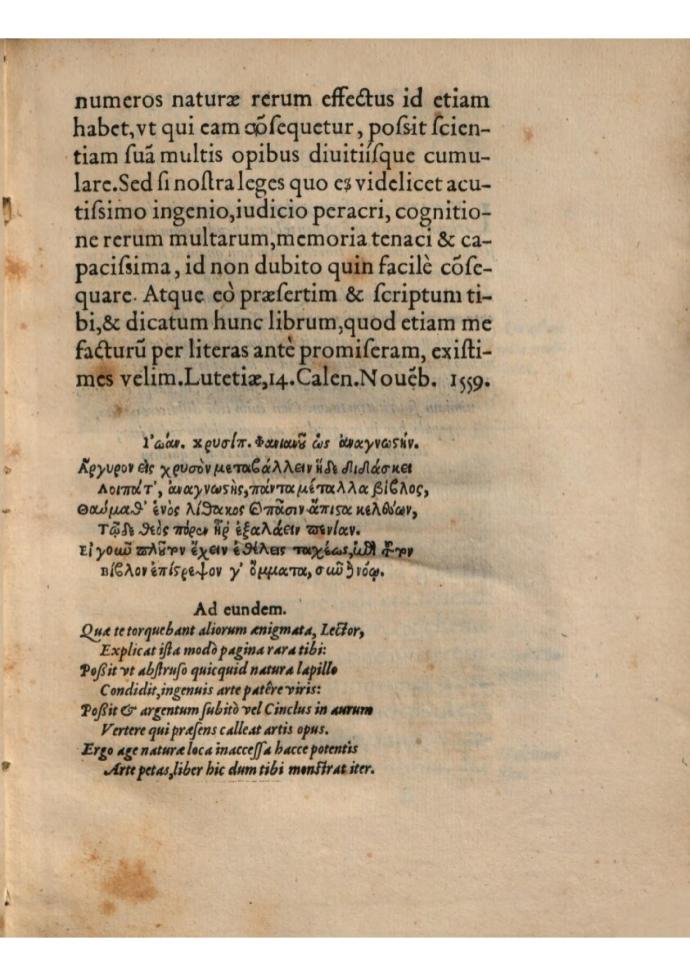 numeros naturæ rerum effectus id etiam
habet, vt qui eam cõsequetur, possit scien-
tiam suã multis opibus diuitiisque cumu-
lare. Sed si nostra leges quo es videlicet acu-
tissimo ingenio, iudicio peracri, cognitio-
ne rerum multarum, memoria tenaci & ca-
pacissima, id non dubito quin facilè cõse-
quare. Atque eò præsertim & scriptum ti-
bi, & dicatum hunc librum, quod etiam me
facturũ per literas antè promiseram, existi-
mes velim. Lutetiæ, 14. Calen. Nouẽb. 1559.
Ἰωάν. χρυσίπ. Φανιανοῦ ὡς ἀναγνωστήν.
Ἄργυρον εἰς χρυσὸν μεταβάλλειν ἥδε διδάσκει
Λοιπά τ', ἀναγνωστής, πάντα μέταλλα βίβλος,
Θαύμαθ' ἑνὸς λίθακος πᾶσιν ἄπιστα
Τῷδε θεὸς πόρον πενίαν.
ἔχειν ἐθέλεις ταχέως,
Βίβλον ἐπίστρεψον γ' ὄμματα, νόῳ.
Ad eundem.
Quæ te torquebant aliorum ænigmata, Lector,
Explicat ista modò pagina rara tibi:
Possit vt abstruso quicquid natura lapillo
Condidit, ingenuis arte patêre viris:
Possit & argentum subitò vel Cinclus in aurum
Vertere qui præsens calleat artis opus.
Ergo age naturæ loca inaccessa hacce potentis
Arte petas, liber hic dum tibi monstrat iter.